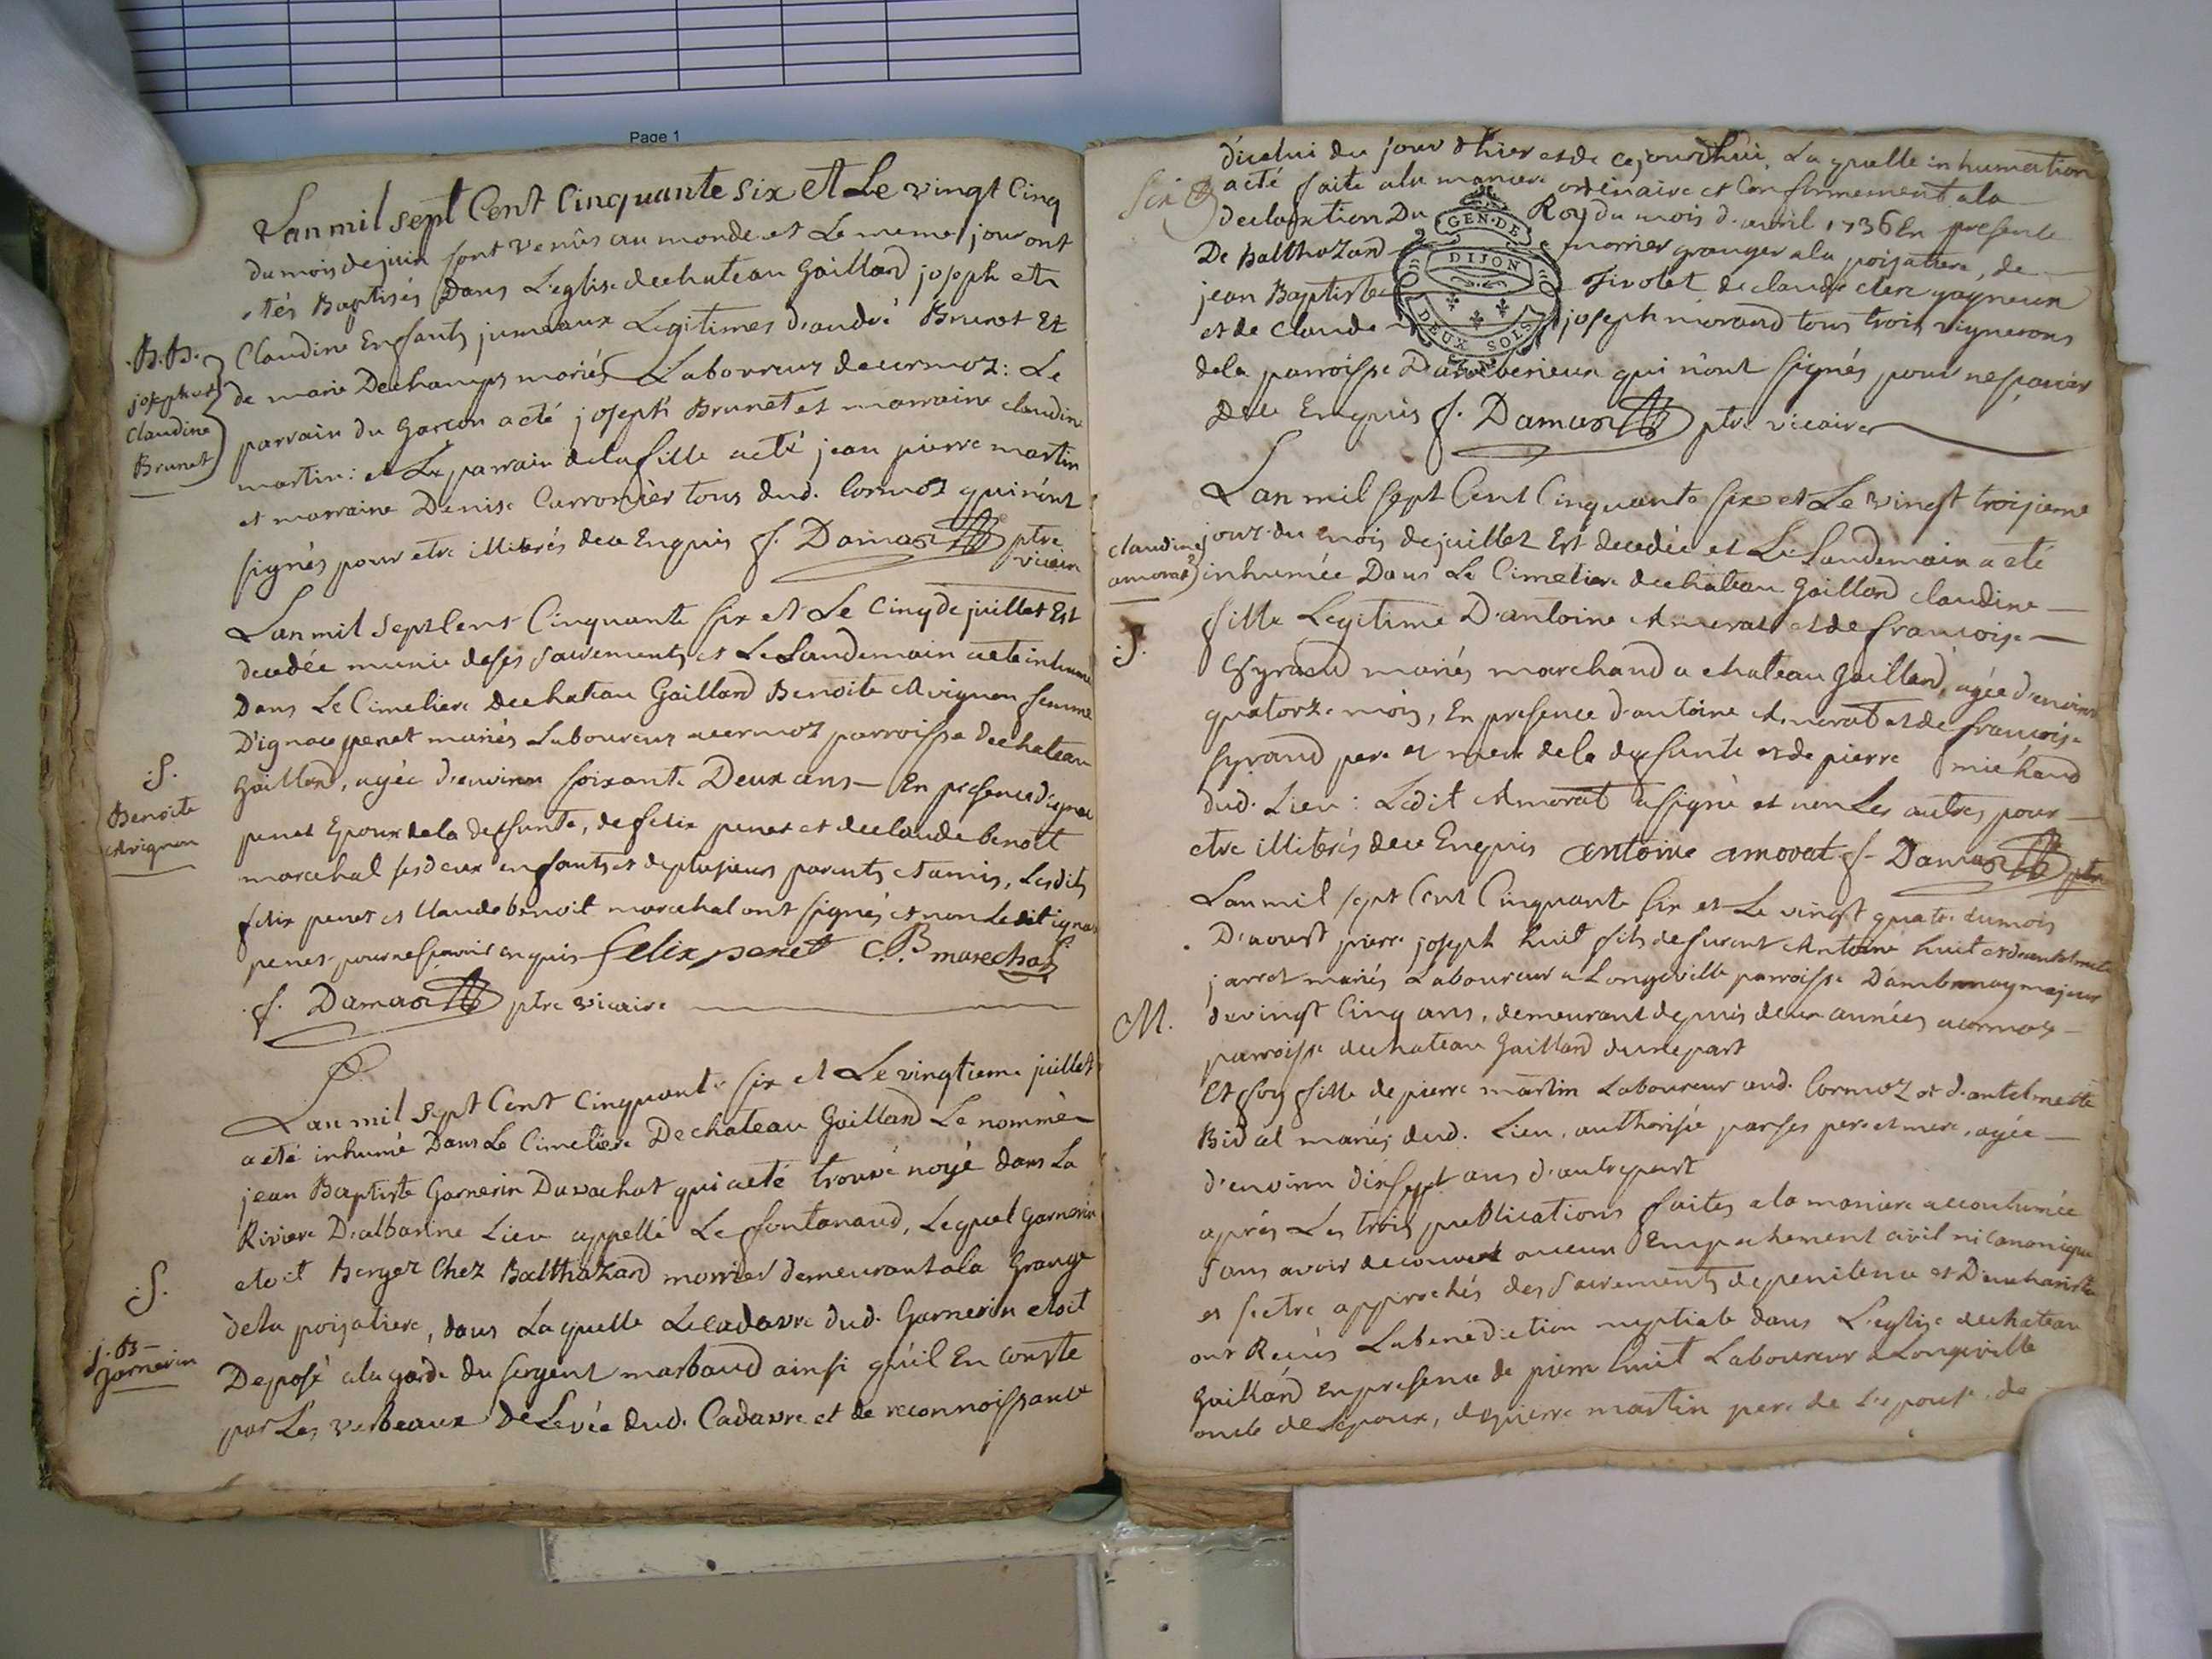 Page 1
Lan mil sept Cent Cinquante six et Le vingt Cinq
du mois de juin sont venûs au monde et Le meme jour ont
etés Baptisés Dans L'eglise de chateau Gaillard joseph et
Claudine Enfants jumeaux Legitimes d'andré Brunet Et
de marie Dechamps mariés Laboureurs de cormoz: Le
parrain du Garcon a eté joseph Brunet et marraine claudine
martin: et Le parrain de la fille a eté jean pierre martin
et marraine Denise Carronier tous dud. Cormoz qui n'ont
signés pour etre illiterés de ce Enquis f. Damas ptre
vicaire
B.B.
joseph et
Claudine
Brunet
Lan mil sept Cent Cinquante six et Le Cinq de juillet Est
decedée munie de ses sacrements et Le Landemain a eté inhumé
Dans Le Cimetiere de chateau Gaillard Benoite Avignon femme
D'ignace penet mariés Laboureurs a cormoz parroisse de chateau
Gaillard, agée d'environ soixante Deux ans – En presence d'ignace
penet Epoux de la deffunte, de felix penet et de claude benoît
marechal ses deux enfants et de plusieurs parents et amis, Lesdits
felix penet et Claude benoit marechal ont signés et non Ledit ignace
penet pour ne sçavoir enquis felix penet C.B. marechal
f. Damas ptre vicaire
S.
Benoite
Avignon
Lan mil sept Cent Cinquante six et Le vingtieme juillet
a eté inhumé Dans Le Cimetiere De chateau Gaillard Le nommé
jean Baptiste Garnerin Duvachat qui a eté trouvé noyé dans La
Riviere D'albarine Lieu appellé Le fontanaud, Lequel Garnerin
etoit Berger Chez Balthazard morrier demeurant a la Grange
de la poisatiere, dans Laquelle Le cadavre dud. Garnerin etoit
Deposé a la garde du sergent marbaud ainsi qu'il En conste
par Les verbeaux de Levée dud. Cadavre et de reconnoissance
S.
J.B
Garnerin
d'icelui du jour d'hier et de ce jourd'hui. La quelle inhumation
a eté faite a la maniere ordinaire et Conformement a la
declaration Du Roy du mois d'avril 1736 En presence
De Balthazard morrier granger a la poisatiere, de
jean Baptiste Tivolet de claude clerc gagneux
et de Claude joseph morand tous trois vignerons
de la parroisse D'amberieux qui n'ont signés pour ne sçavoir
de ce Enquis f. Damas ptre vicaire
Six
GEN. DE
DIJON
DEUX SOLS
Lan mil sept Cent Cinquante six et Le vingt troisieme
jour du mois de juillet Est decedée et Le Landemain a eté
inhumée Dans Le Cimetiere de chateau Gaillard claudine
fille Legitime D'antoine Amorat et de francoise
Eyraud mariés marchand a chateau Gaillard, agée d'environ
quatorze mois, En presence d'antoine Amorat et de francoise
Eyraud pere et mere de la deffunte et de pierre michaud
dud. Lieu: Ledit Amorat a signé et non Les autres pour
etre illiterés de ce Enquis antoine amorat f. Damas ptre
claudine
amorat
S.
Lan mil sept Cent Cinquante six et Le vingt quatre du mois
D'aoust pierre joseph huit fils de furent Antoine huit et d'anthelmette
jarret mariés Laboureur a Longeville parroisse D'ambronay majeur
de vingt Cinq ans, demeurant depuis deux années a cormoz
parroisse de chateau Gaillard d'une part
Et foy fille de pierre martin Laboureur aud. Cormoz et d'antelmette
Bidal mariés dud. Lieu, authorisée par ses pere et mere, agée
d'environ dix sept ans d'autre part
après Les trois publications faites a la maniere accoutumée
sans avoir decouvert aucun Empechement civil ni Canonique
et s'etre approchés des sacrements de penitence et D'eucharistie
ont Reçus La benediction nuptiale dans L'eglise de chateau
Gaillard En presence de pierre huit Laboureur a Longeville
oncle de L'epoux, de pierre martin pere de L'epouse, de
M.